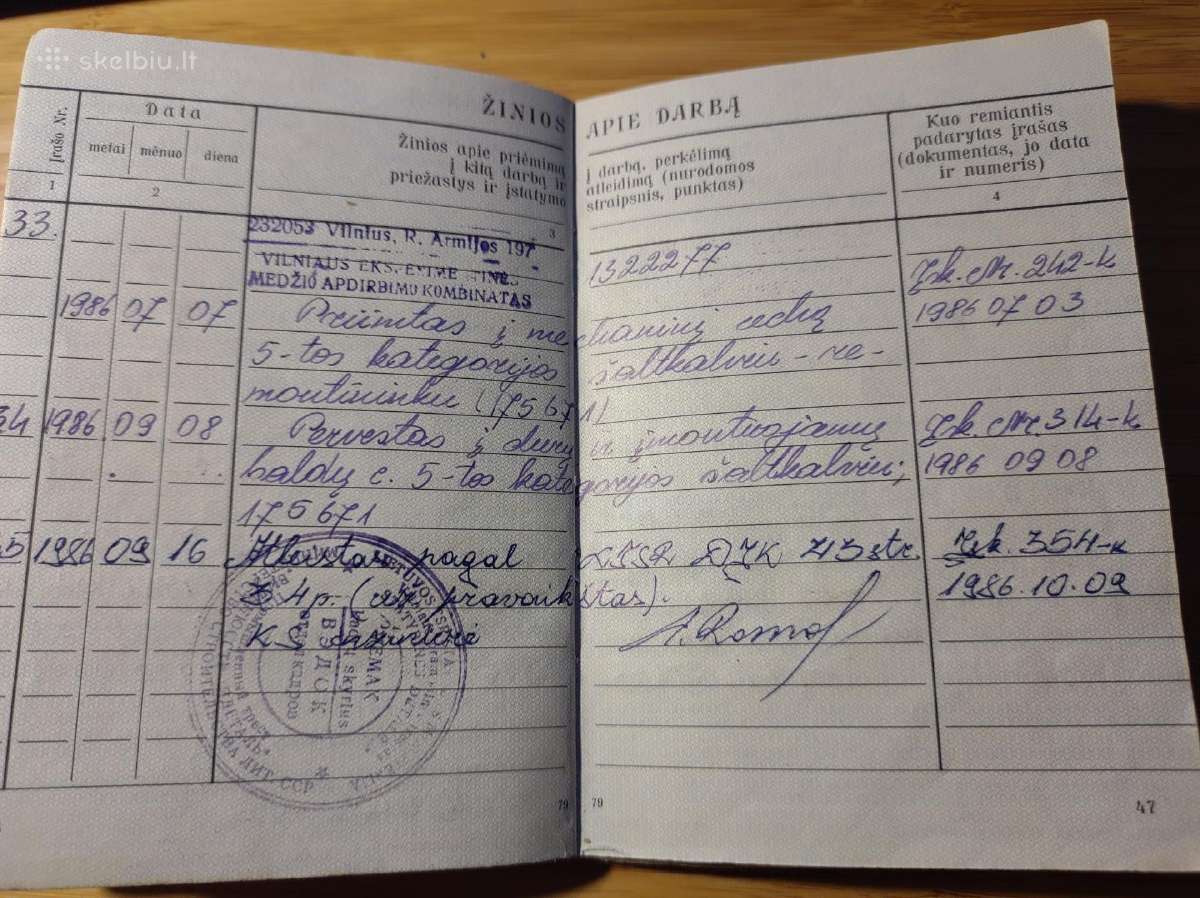 skelbiu.lt
ŽINIOS APIE DARBĄ
Įrašo Nr.
Data
metai mėnuo diena
Žinios apie priėmimą į darbą, perkėlimą
į kitą darbą ir atleidimą (nurodomos
priežastys ir įstatymo straipsnis, punktas)
Kuo remiantis
padarytas įrašas
(dokumentas, jo data
ir numeris)
1 2 3 4
33. 232053 Vilnius, R. Armijos 197 1322277 Įsk. Nr. 242-k
VILNIAUS
MEDŽIO APDIRBIMO KOMBINATAS
1986 07 07 Priimtas į mechaninį cechą 1986 07 03
5-tos kategorijos šaltkalviu-re-
montininku (175671)
34 1986 09 08 Pervestas į durų ir įmontuojamų Įsk. Nr. 314-k
baldų c. 5-tos kategorijos šaltkalviu; 1986 09 08
175671
5 1986 09 16 Atleistas pagal LTSR DĮK 43 str. Įsk. 354-k
4 p. (už pravaikštas). 1986.10.09
K. S. A. Romo
skyrius
ВЗДОК
отдел кадров
ЛИТ. ССР
79 79 47